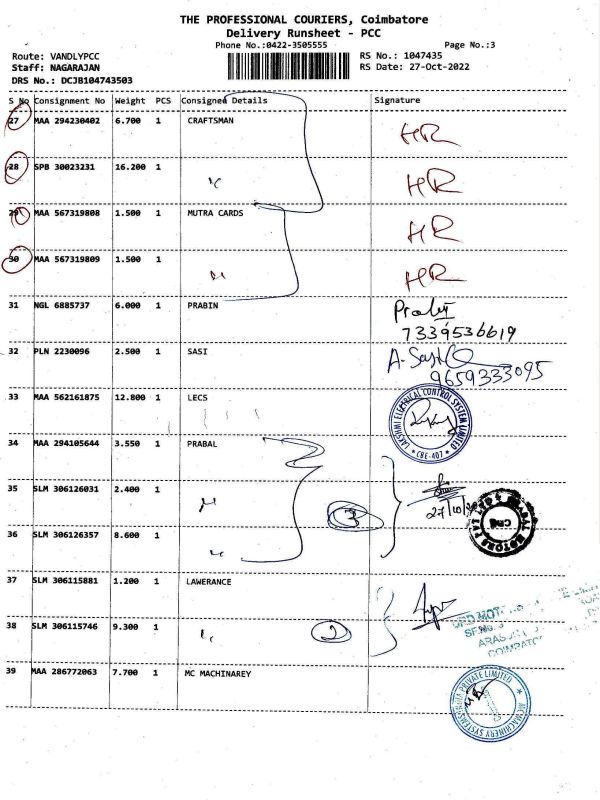 THE PROFESSIONAL COURIERS, Coimbatore
Delivery Runsheet - PCC
Phone No.:0422-3505555 Page No.:3
Route: VANDLYPCC RS No.: 1047435
Staff: NAGARAJAN RS Date: 27-Oct-2022
DRS No.: DCJB104743503
S No Consignment No Weight PCS Consigned Details Signature
27 MAA 294230402 6.700 1 CRAFTSMAN HR
28 SPB 30023231 16.200 1 HR
29 MAA 567319808 1.500 1 MUTRA CARDS HR
30 MAA 567319809 1.500 1 HR
31 NGL 6885737 6.000 1 PRABIN
7339536619
32 PLN 2230096 2.500 1 SASI
9659333095
33 MAA 562161875 12.800 1 LECS LAKSHMI ELECTRICAL CONTROL SYSTEM LIMITED * CBE-407 *
34 MAA 294105644 3.550 1 PRABAL
35 SLM 306126031 2.400 1
3 27/10
36 SLM 306126357 8.600 1
37 SLM 306115881 1.200 1 LAWERANCE
38 SLM 306115746 9.300 1 2
39 MAA 286772063 7.700 1 MC MACHINAREY MCMACHINERY SYSTEMS PRIVATE LIMITED